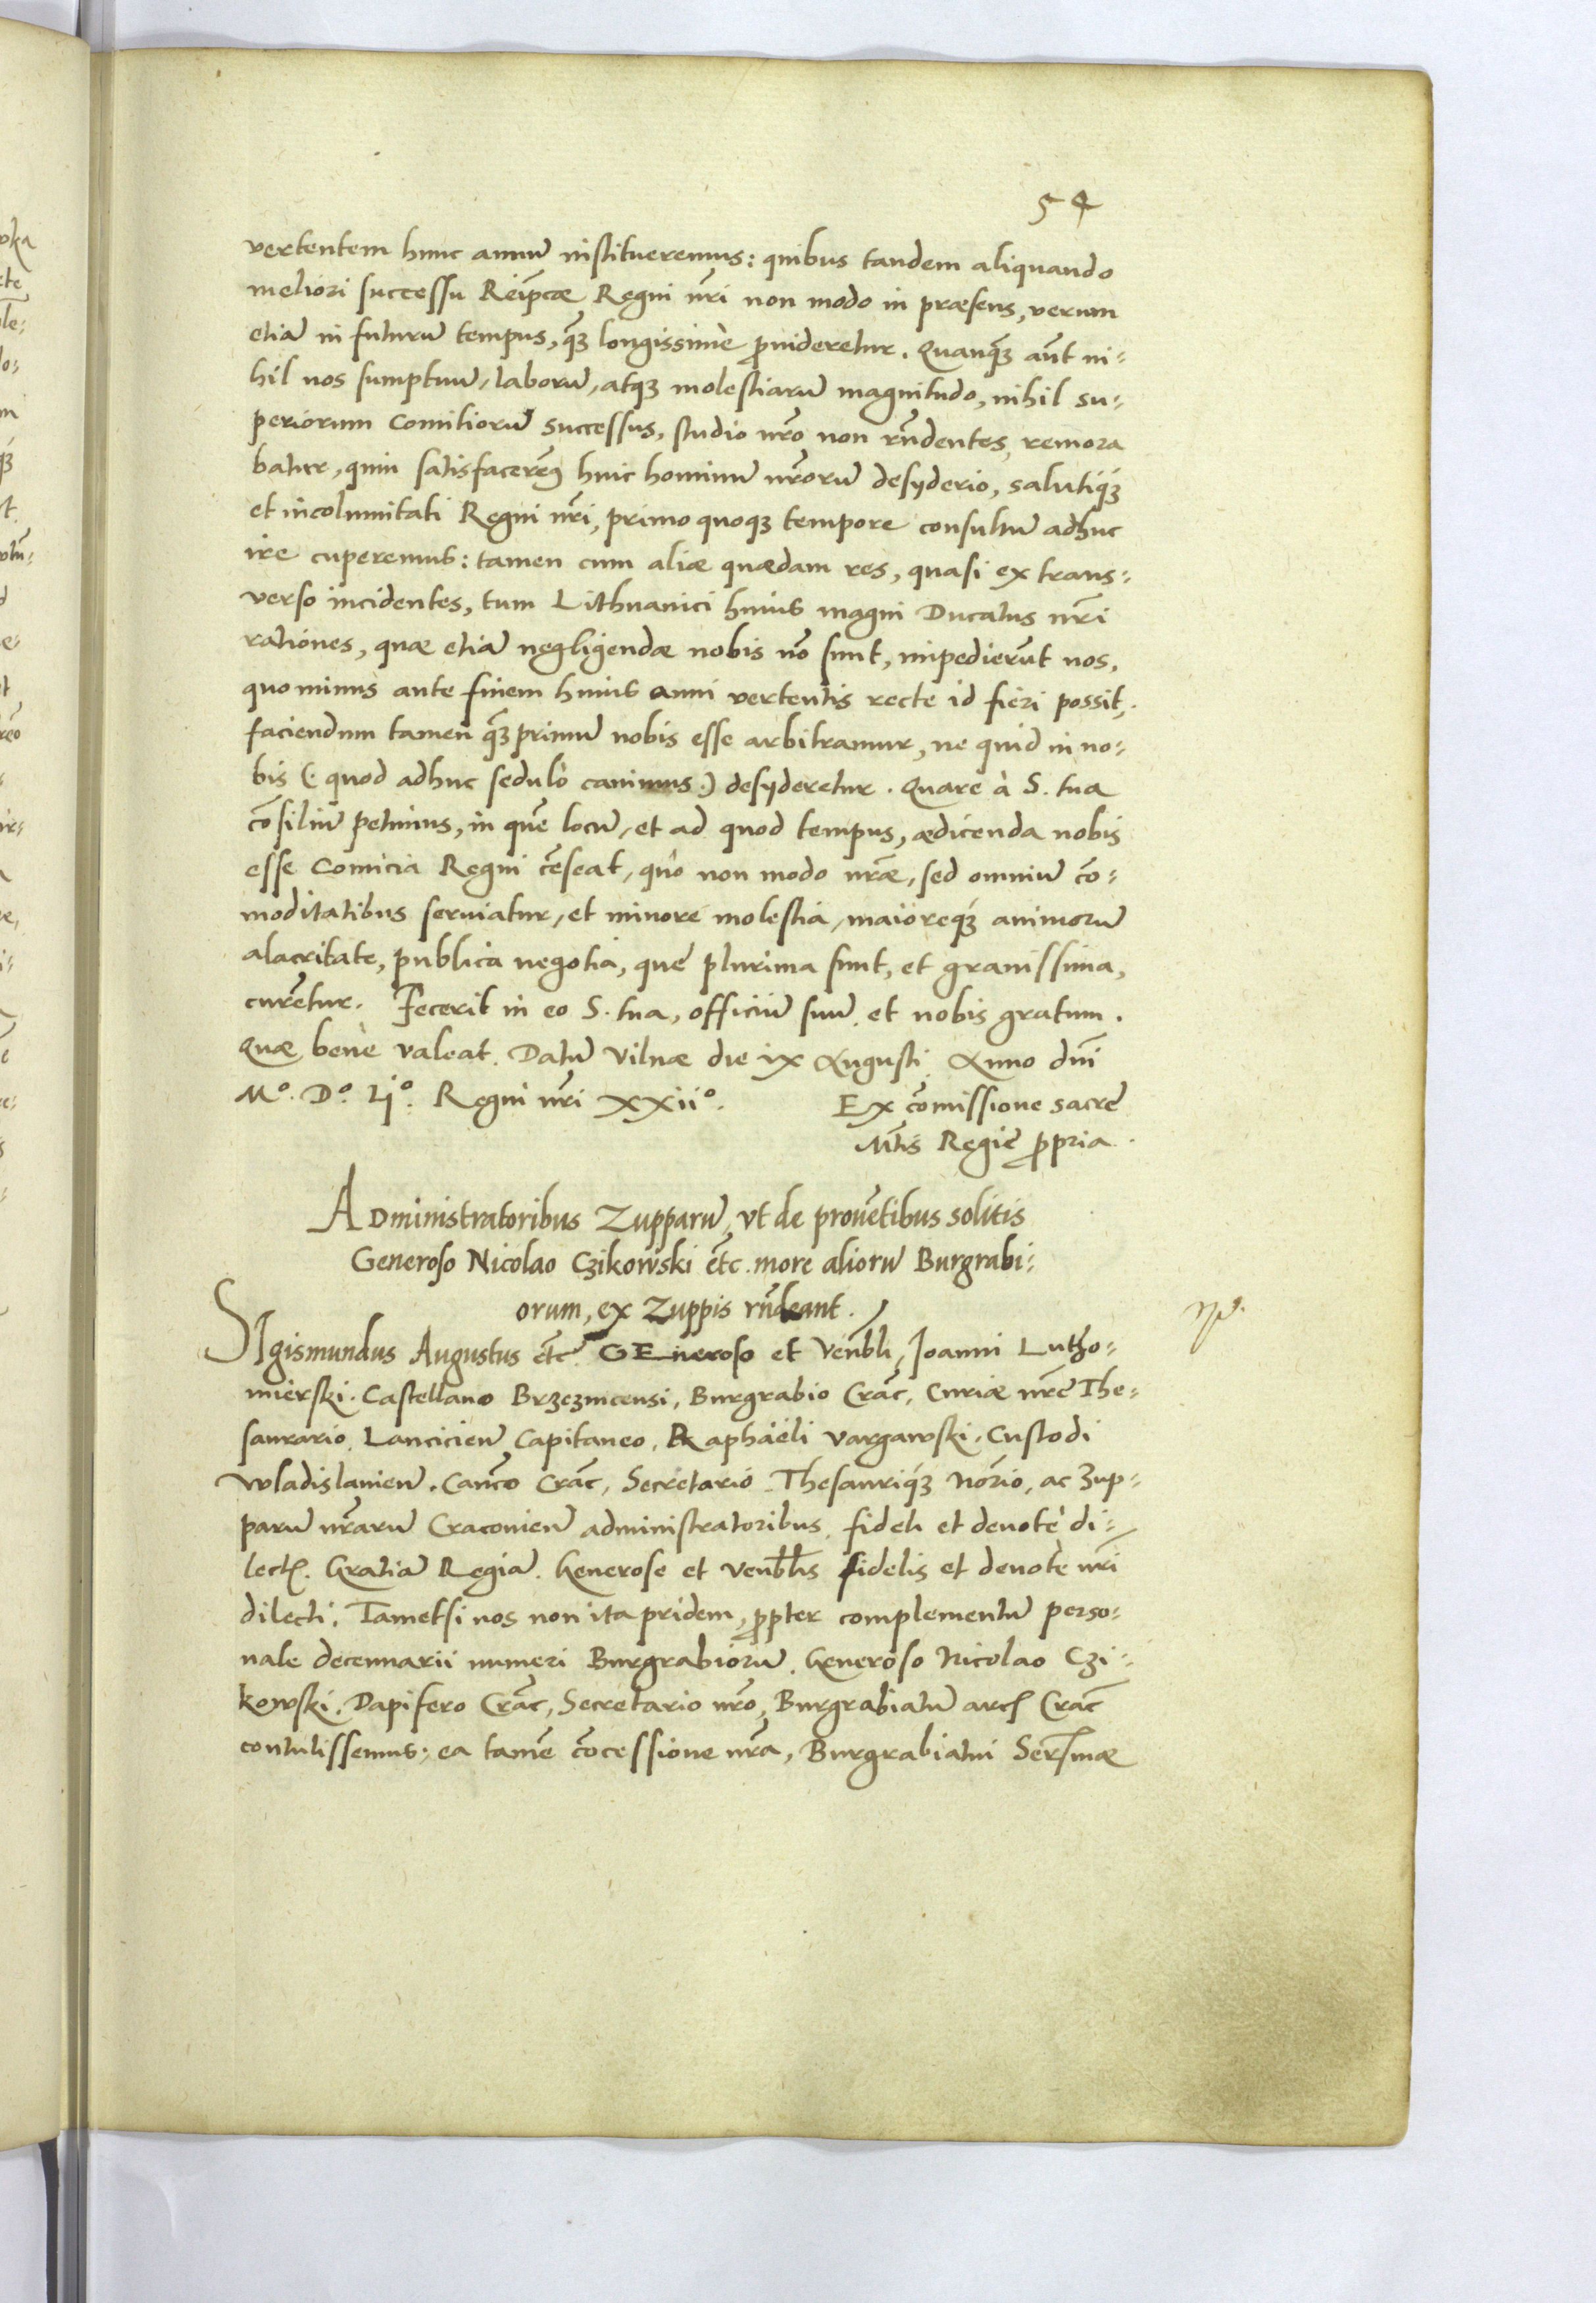 54
vertentem hunc annū institueremus: quibus tandem aliquando
meliori successu Reipcæ Regni nr̄i non modo in præsens, verum
etiā in futurū tempus, q̄ꝫ longissime ꝓuideretur. Quanq̄ꝫ aūt ni-
hil nos sumptuū, laborū, atqꝫ molestiarū magnitudo, nihil su-
periorum Comitiorū successus, studio nr̄o non rn̄dentes, remora
batur, quin satisfacerem9 huic hominū nr̄orū desyderio, salutiqꝫ
et incolumitati Regni nr̄i, primo quoqꝫ tempore consultū adhuc
ire cuperemus: tamen cum aliæ quædam res, quasi ex trans-
verso incidentes, tum Lithuanici huius magni Ducatus nr̄i
rationes, quæ etiā negligendæ nobis nō sunt, impedierūt nos,
quo minus ante finem huius anni vertentis recte id fieri possit,
faciendum tamen q̄ꝫ primū nobis esse arbitramur, ne quid in no-
bis (: quod adhuc sedulò cauimus:) desyderetur. Quare à S. tua
cōsiliū petimus, in quē locū, et ad quod tempus, ædicenda nobis
esse Comicia Regni cēseat, quò non modo nr̄æ, sed omniū cō-
moditatibus seruiatur, et minore molestia, maioreqꝫ animorū
alacritate, publica negotia, que plurima sunt, et grauissima,
curētur. Fecerit in eo S. tua, officiū suū et nobis gratum.
Quæ bene valeat. Datū Vilnæ die ix Augusti Anno dn̄i
Mº. Dº. Ljº. Regni nr̄i xxiiº. Ex cōmissione sacre
Mtis Regie ꝓpria.
ADministratoribus Zupparū, vt de prouētibus solitis
Generoso Nicolao Czikowski etc̄. more aliorū Burgrabi-
orum, ex Zuppis rn̄deant.
SIgismundus Augustus etc̄. GEneroso et Venbli, Joanni Lutho-
mierski. Castellano Brzezinensi, Burgrabio Crac̄, Curiæ nr̄e The-
saurario, Lanciciēn Capitaneo, Raphaëli Vargawski. Custodi
Wladislauien̄. Canco Crac̄, Secretario Thesauriqꝫ Norio, ac Zup-
parū nr̄arū Cracouien̄ administratoribus, fideli et deuote di-
lectꝭ. Gratiā Regiā. Generose et Venblis fidelis et deuote nr̄i
dilecti. Tametsi nos non ita pridem, ꝓpter complementū perso-
nale decennarii numeri Burgrabiorū, Generoso Nicolao Czi-
kowski, Dapifero Crac̄, Secretario nr̄o, Burgrabiatū arcꝭ Crac̄
contulissemus; ea tamē cōcessione nr̄a, Burgrabiatui Serꝭmæ